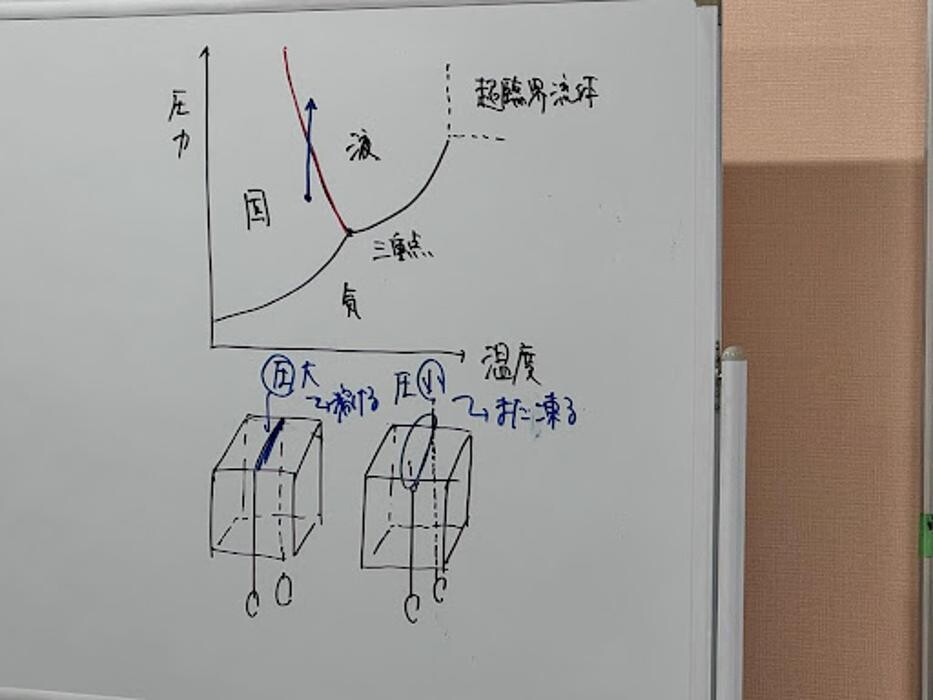 圧力
超臨界流体
液
固
三重点
気
温度
圧大
圧小
また凍る